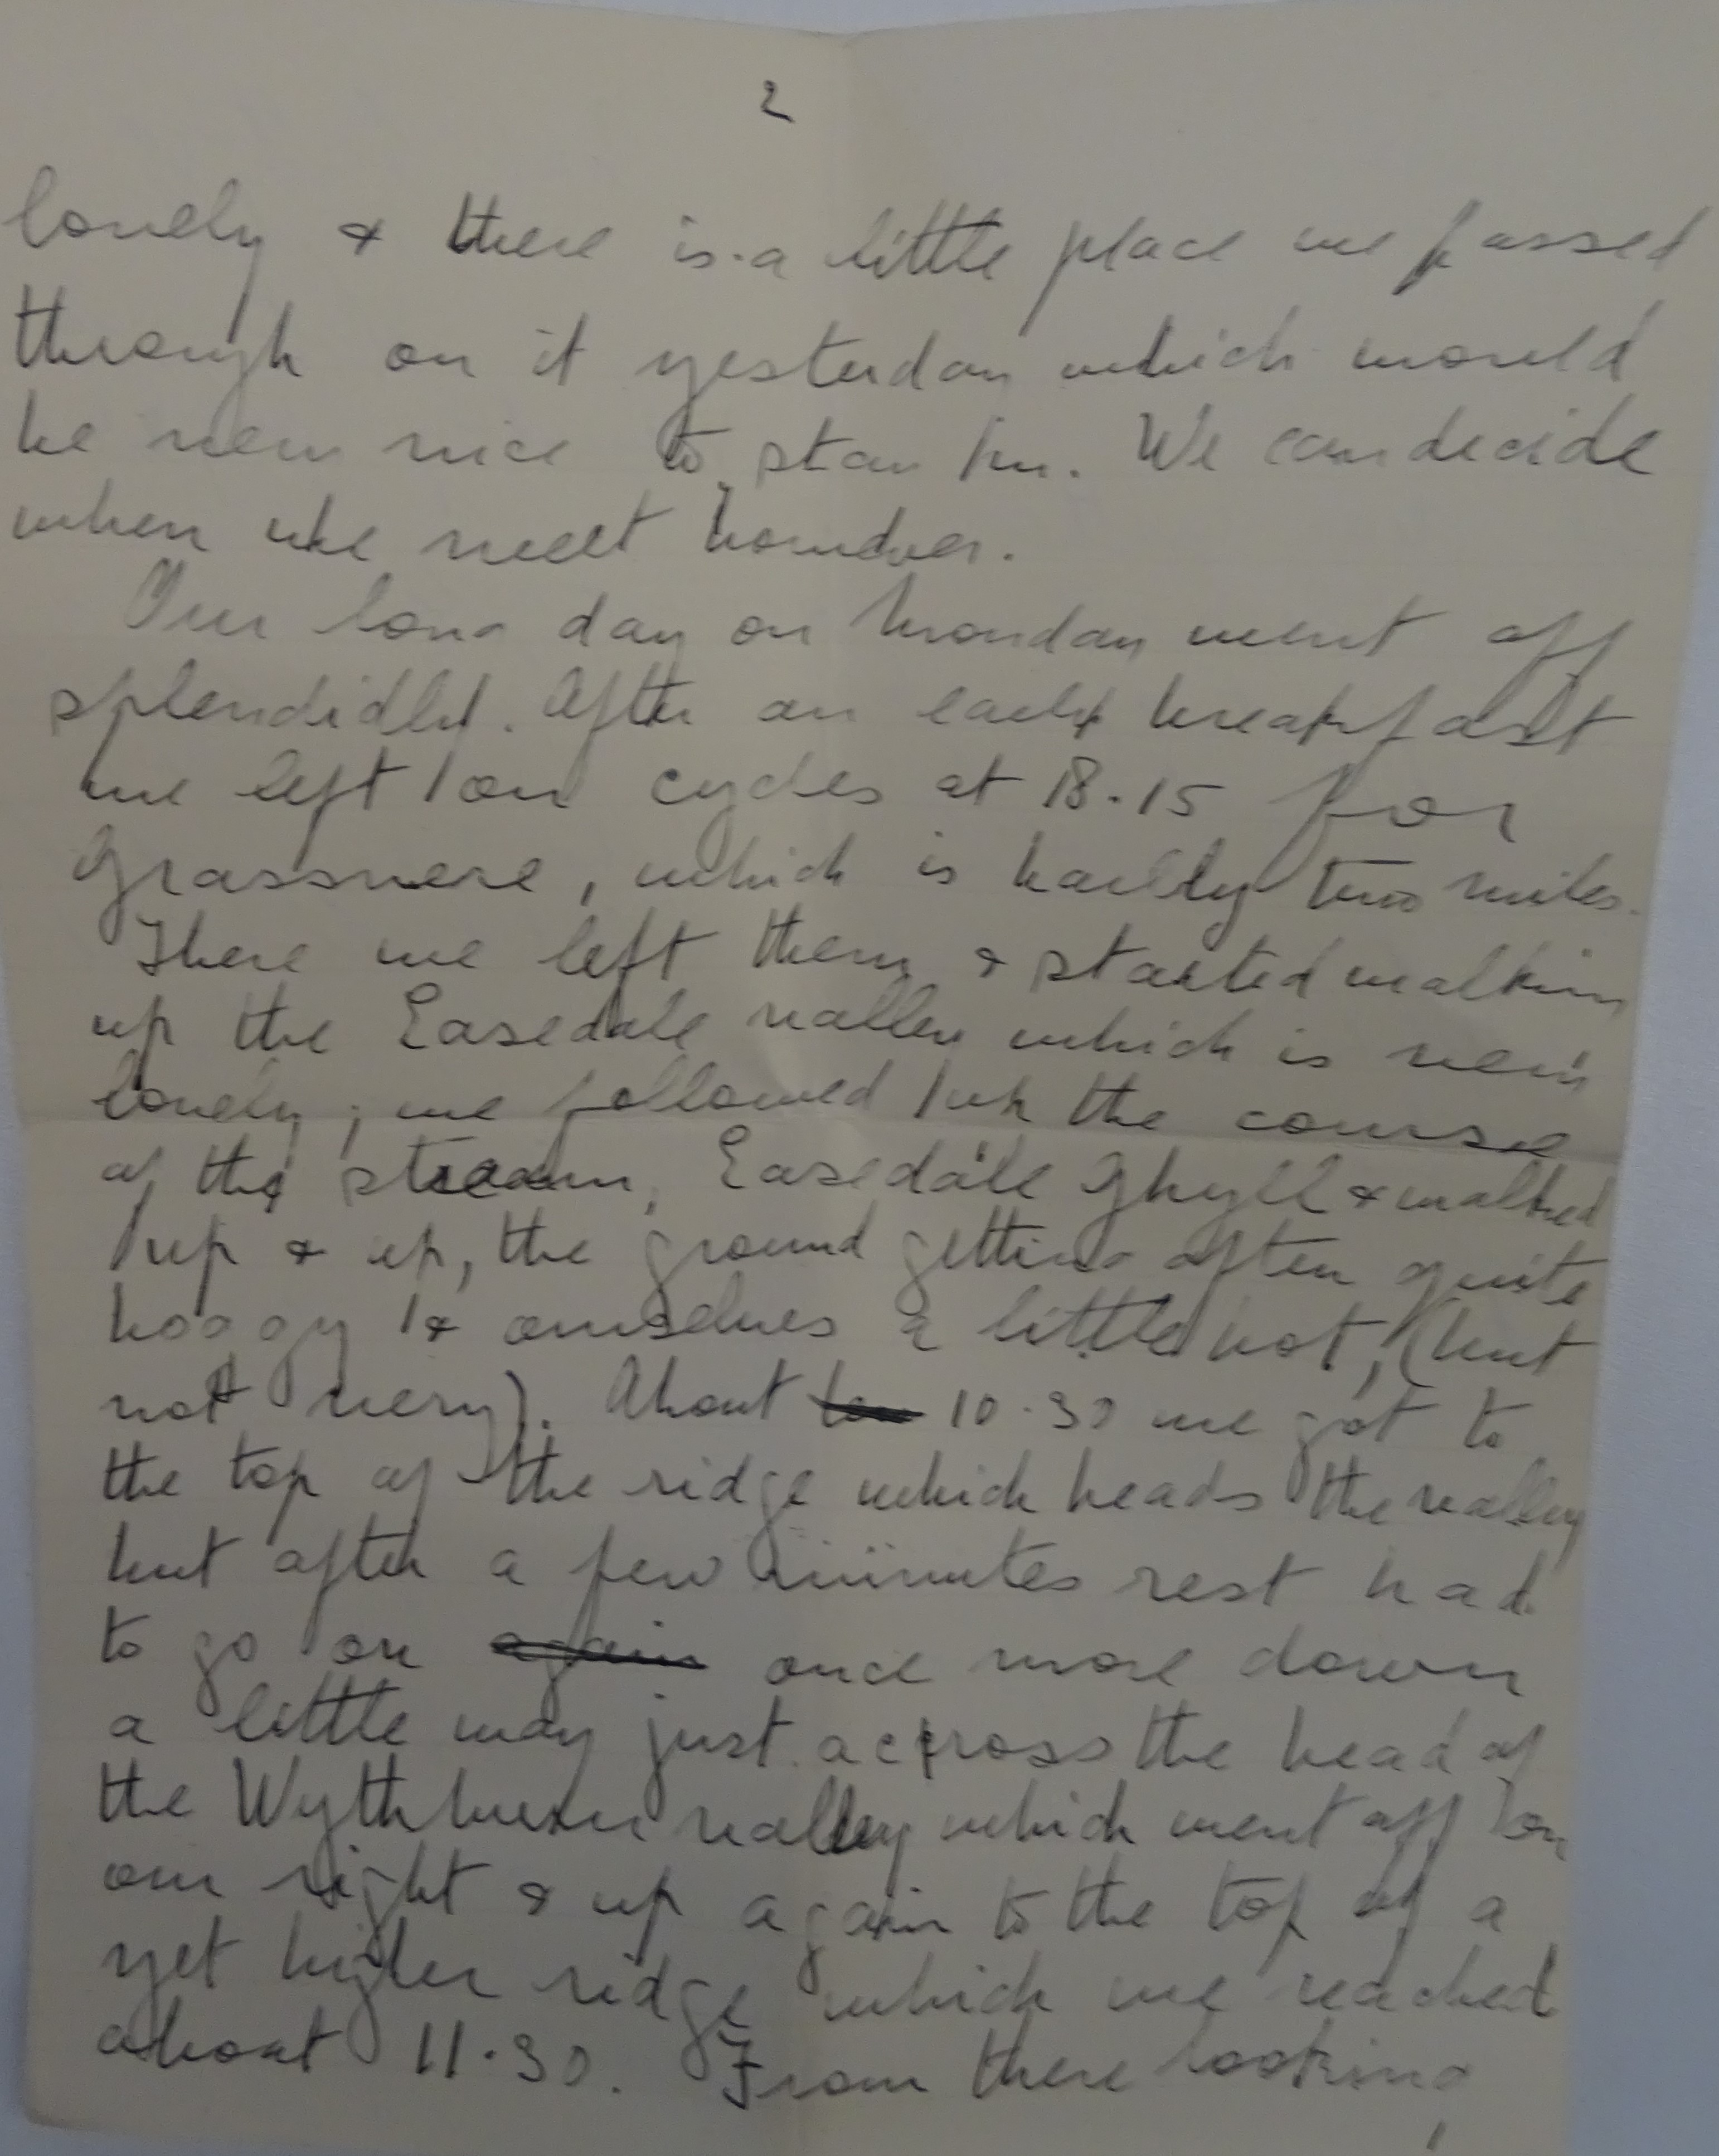 2
lovely & there is a little place we passed
through on it yesterday which would
be very nice to stay in. We can decide
when we meet however.
Our long day on Monday went off
splendidly. After an early breakfast
we left on cycles at 8.15 for
Grassmere, which is hardly two miles.
There we left them & started walking
up the Easedale valley which is very
lovely; we followed up the course
of the stream, Easedale Ghyll & walked
up & up, the ground getting often quite
boggy & ourselves a little hot, (but
not very). About 10.30 we got to
the top of the ridge which heads the valley
but after a few minutes rest had
to go on again once more down
a little way just across the head of
the Wythburn valley which went off on
our right & up again to the top of a
yet higher ridge which we reached
about 11.30. From there looking